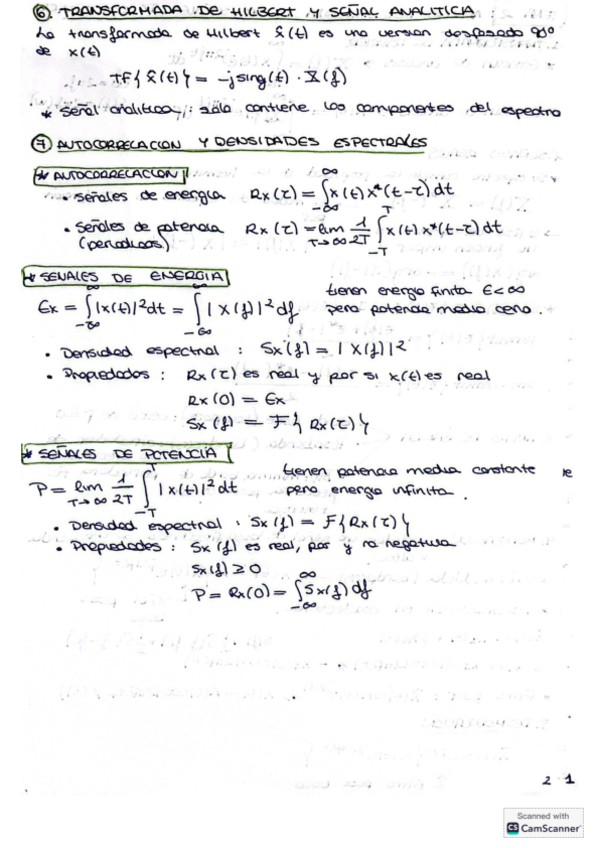 ⑥ TRANSFORMADA DE HILBERT Y SEÑAL ANALITICA
La transformada de Hilbert x̂(t) es una version desfasada 90º
de x(t)
TF{x̂(t)} = -jsing(t) · X(f)
* Señal analitica: sólo contiene los componentes del espectro
⑦ AUTOCORRELACION Y DENSIDADES ESPECTRALES
* AUTOCORRELACION
• Señales de energía Rx(τ) = ∫_{-∞}^{∞} x(t) x*(t-τ) dt
• Señales de potencia Rx(τ) = lim_{T→∞} 1/2T ∫_{-T}^{T} x(t) x*(t-τ) dt
(periodicas)
* SEÑALES DE ENERGIA
Ex = ∫_{-∞}^{∞} |x(t)|² dt = ∫_{-∞}^{∞} |X(f)|² df tienen energia finita E<∞
pero potencia media cero.
• Densidad espectral : Sx(f) = |X(f)|²
• Propiedades : Rx(τ) es real y par si x(t) es real
Rx(0) = Ex
Sx(f) = F{Rx(τ)}
* SEÑALES DE POTENCIA
P = lim_{T→∞} 1/2T ∫_{-T}^{T} |x(t)|² dt tienen potencia media constante
pero energia infinita.
• Densidad espectral : Sx(f) = F{Rx(τ)}
• Propiedades : Sx(f) es real, par y no negativa
Sx(f) ≥ 0
P = Rx(0) = ∫_{-∞}^{∞} Sx(f) df
2 1
Scanned with
CS CamScanner